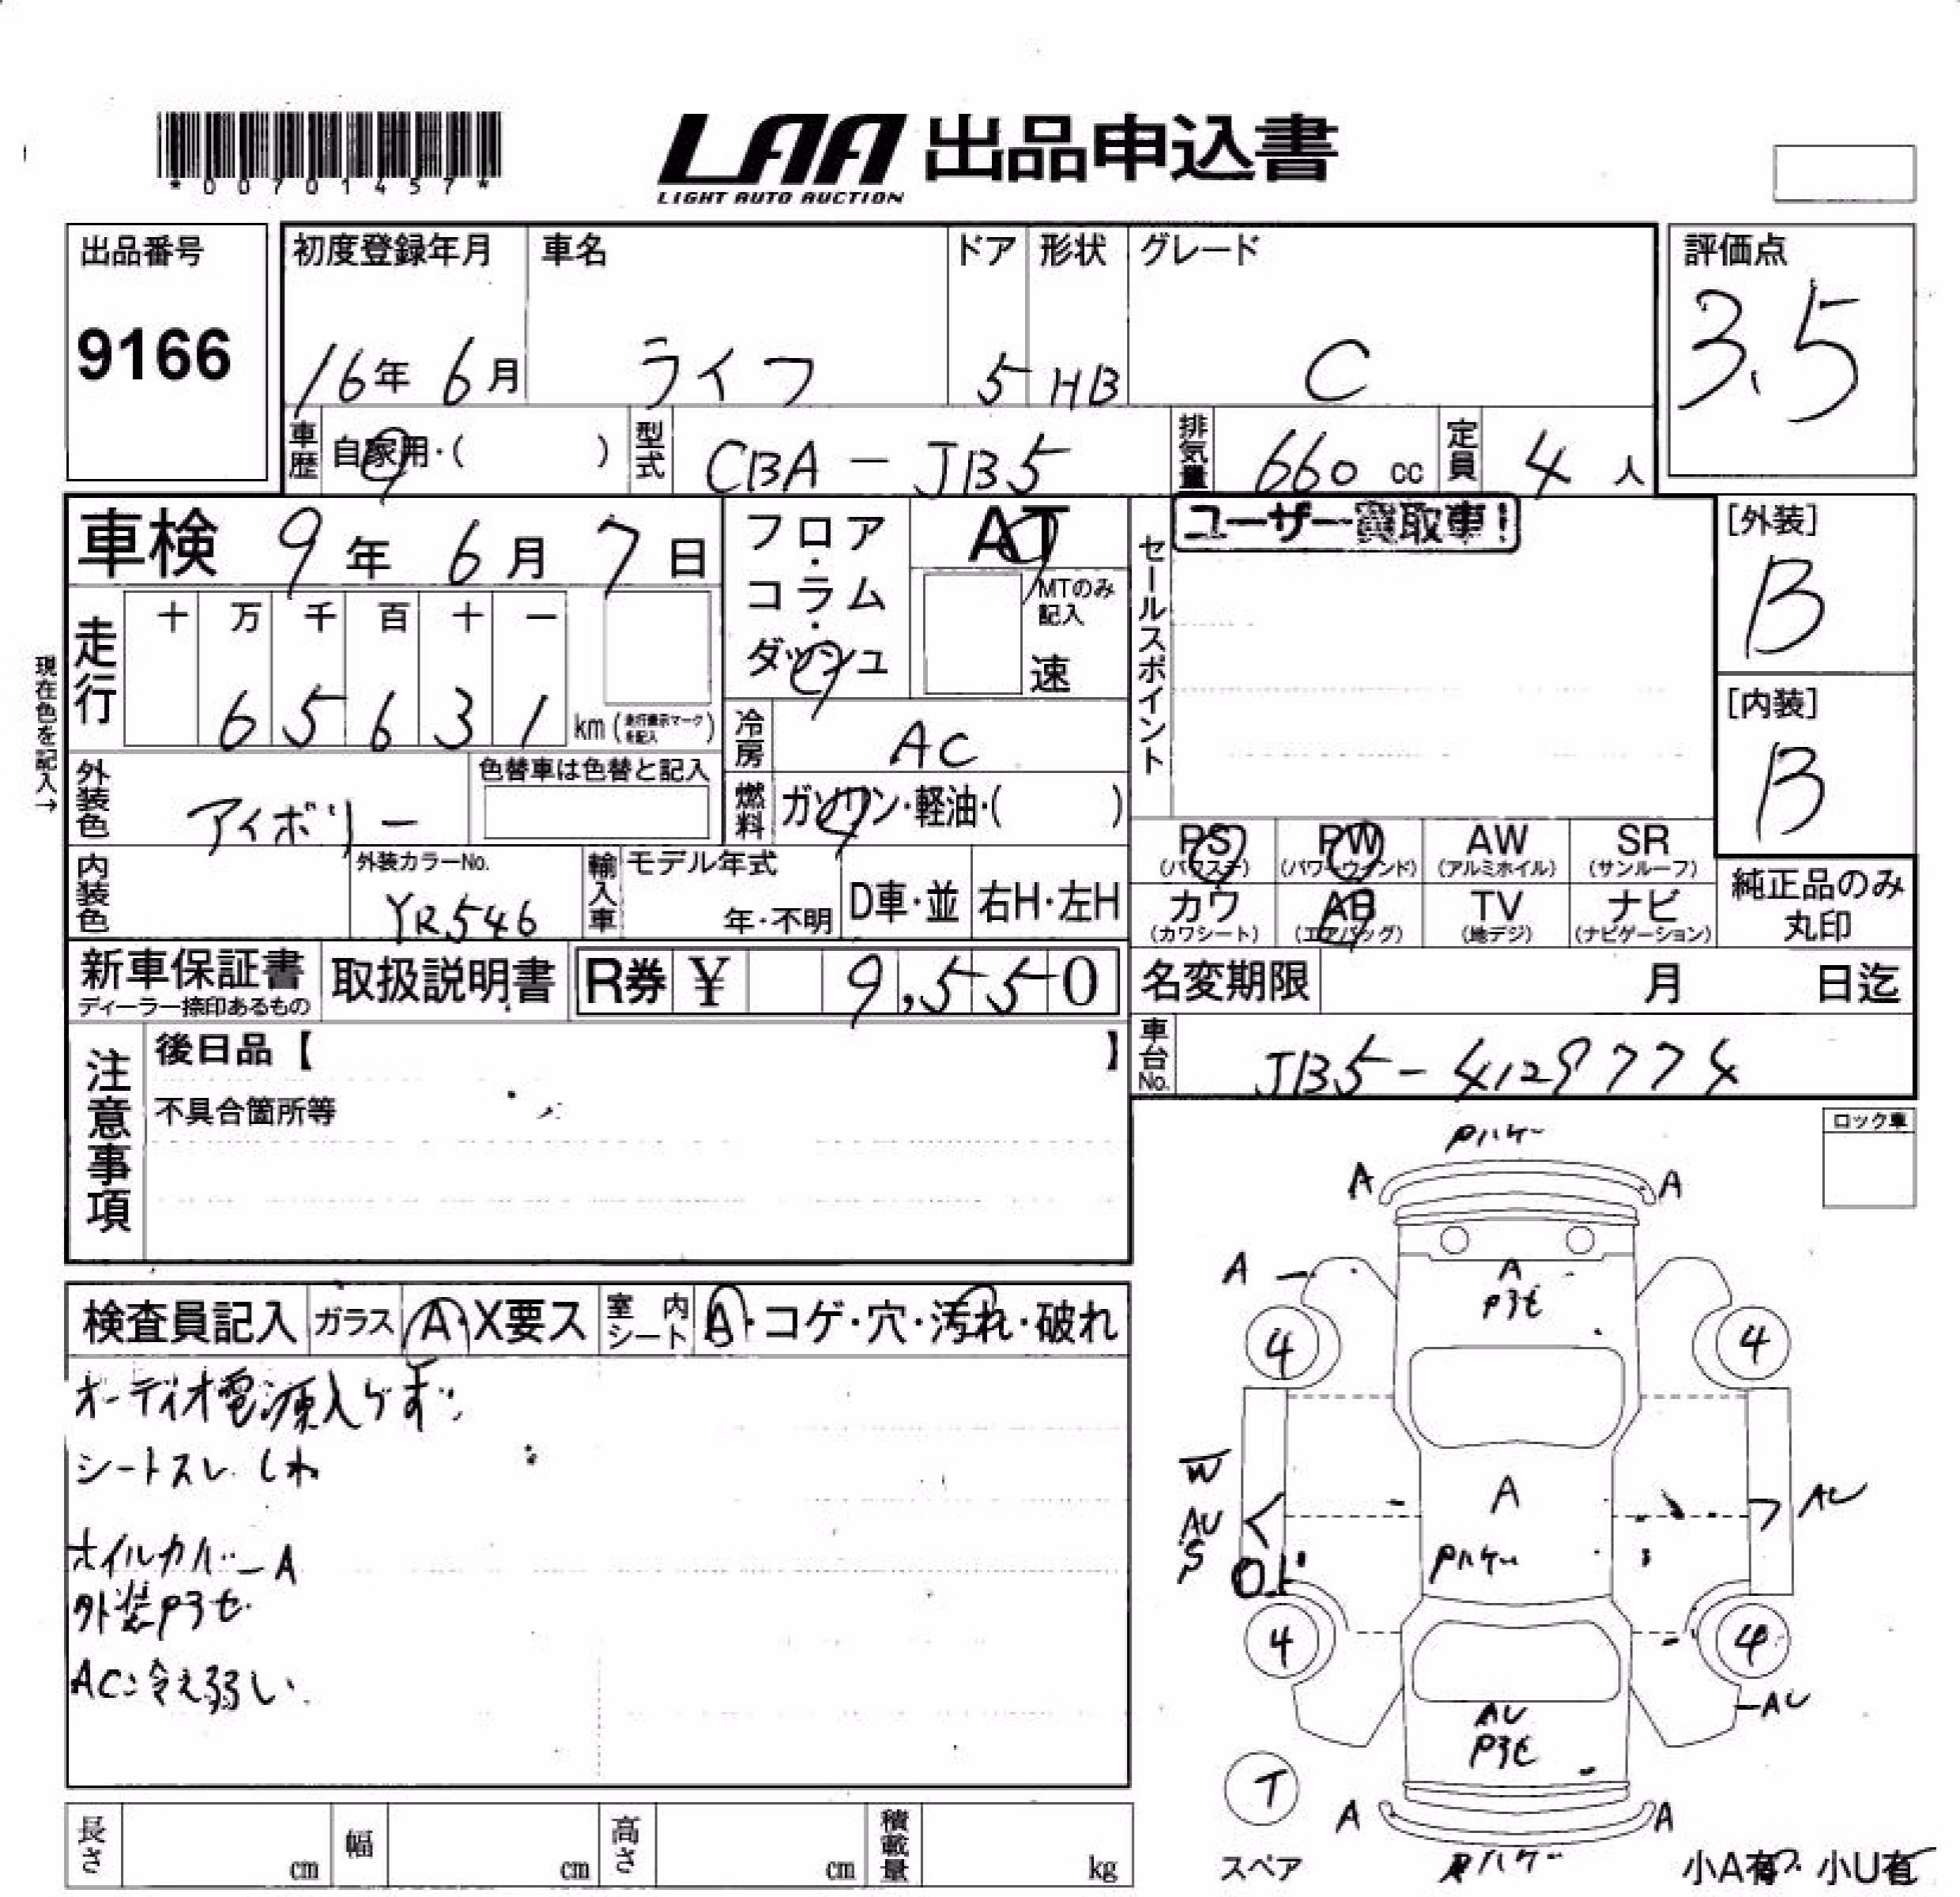 *00701457*
LAA 出品申込書
LIGHT AUTO AUCTION
出品番号
9166
初度登録年月
16年 6月
車名
ライフ
ドア
5
形状
HB
グレード
C
評価点
3.5
車歴
自家用・( )
型式
CBA-JB5
排気量
660 cc
定員
4 人
車検 9年 6月 7日
フロア・コラム・ダッシュ
AT
MTのみ記入
速
セールスポイント
ユーザー買取車!
[外装]
B
[内装]
B
現在色を記入→
走行
十 万 千 百 十 一
6 5 6 3 1 km (走行表示マークを記入)
冷房
AC
外装色
アイボリー
色替車は色替と記入
燃料
ガソリン・軽油・( )
内装色
外装カラーNo.
YR546
輸入車
モデル年式
年・不明
D車・並
右H・左H
PS
(パワステ)
PW
(パワーウインド)
AW
(アルミホイル)
SR
(サンルーフ)
カワ
(カワシート)
AB
(エアバッグ)
TV
(地デジ)
ナビ
(ナビゲーション)
純正品のみ
丸印
新車保証書
ディーラー捺印あるもの
取扱説明書
R券 ¥ 9,550
名変期限 月 日迄
車台No.
JB5-4129774
注意事項
後日品【 】
不具合箇所等
ロック車
検査員記入
ガラス
A・X要ス
室内シート
A・コゲ・穴・汚れ・破れ
オーディオ電源入らず
シートスレ しわ
オイルカバーA
外装Pヨセ
AC冷え弱い
Pハゲ
A
A
A
A
Pヨセ
4
4
W
AU
S
A
AU
Pハゲ
4
4
AU
AU
Pヨセ
T
スペア
A
A
Pハゲ
小A有・小U有
長さ cm
幅 cm
高さ cm
積載量 kg